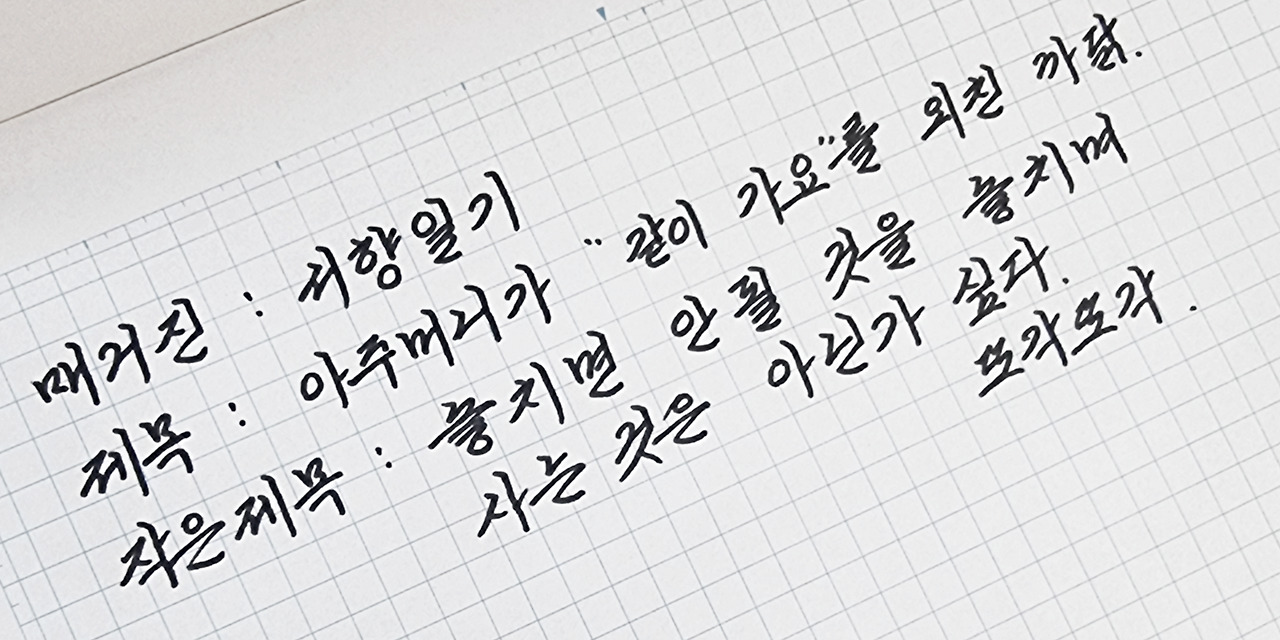 매거진 : 귀향일기
제목 : 아주머니가 "같이 가요"를 외친 까닭.
작은제목 : 놓치면 안 될 것을 놓치며
사는 것은 아닌가 싶다.
또각또각.